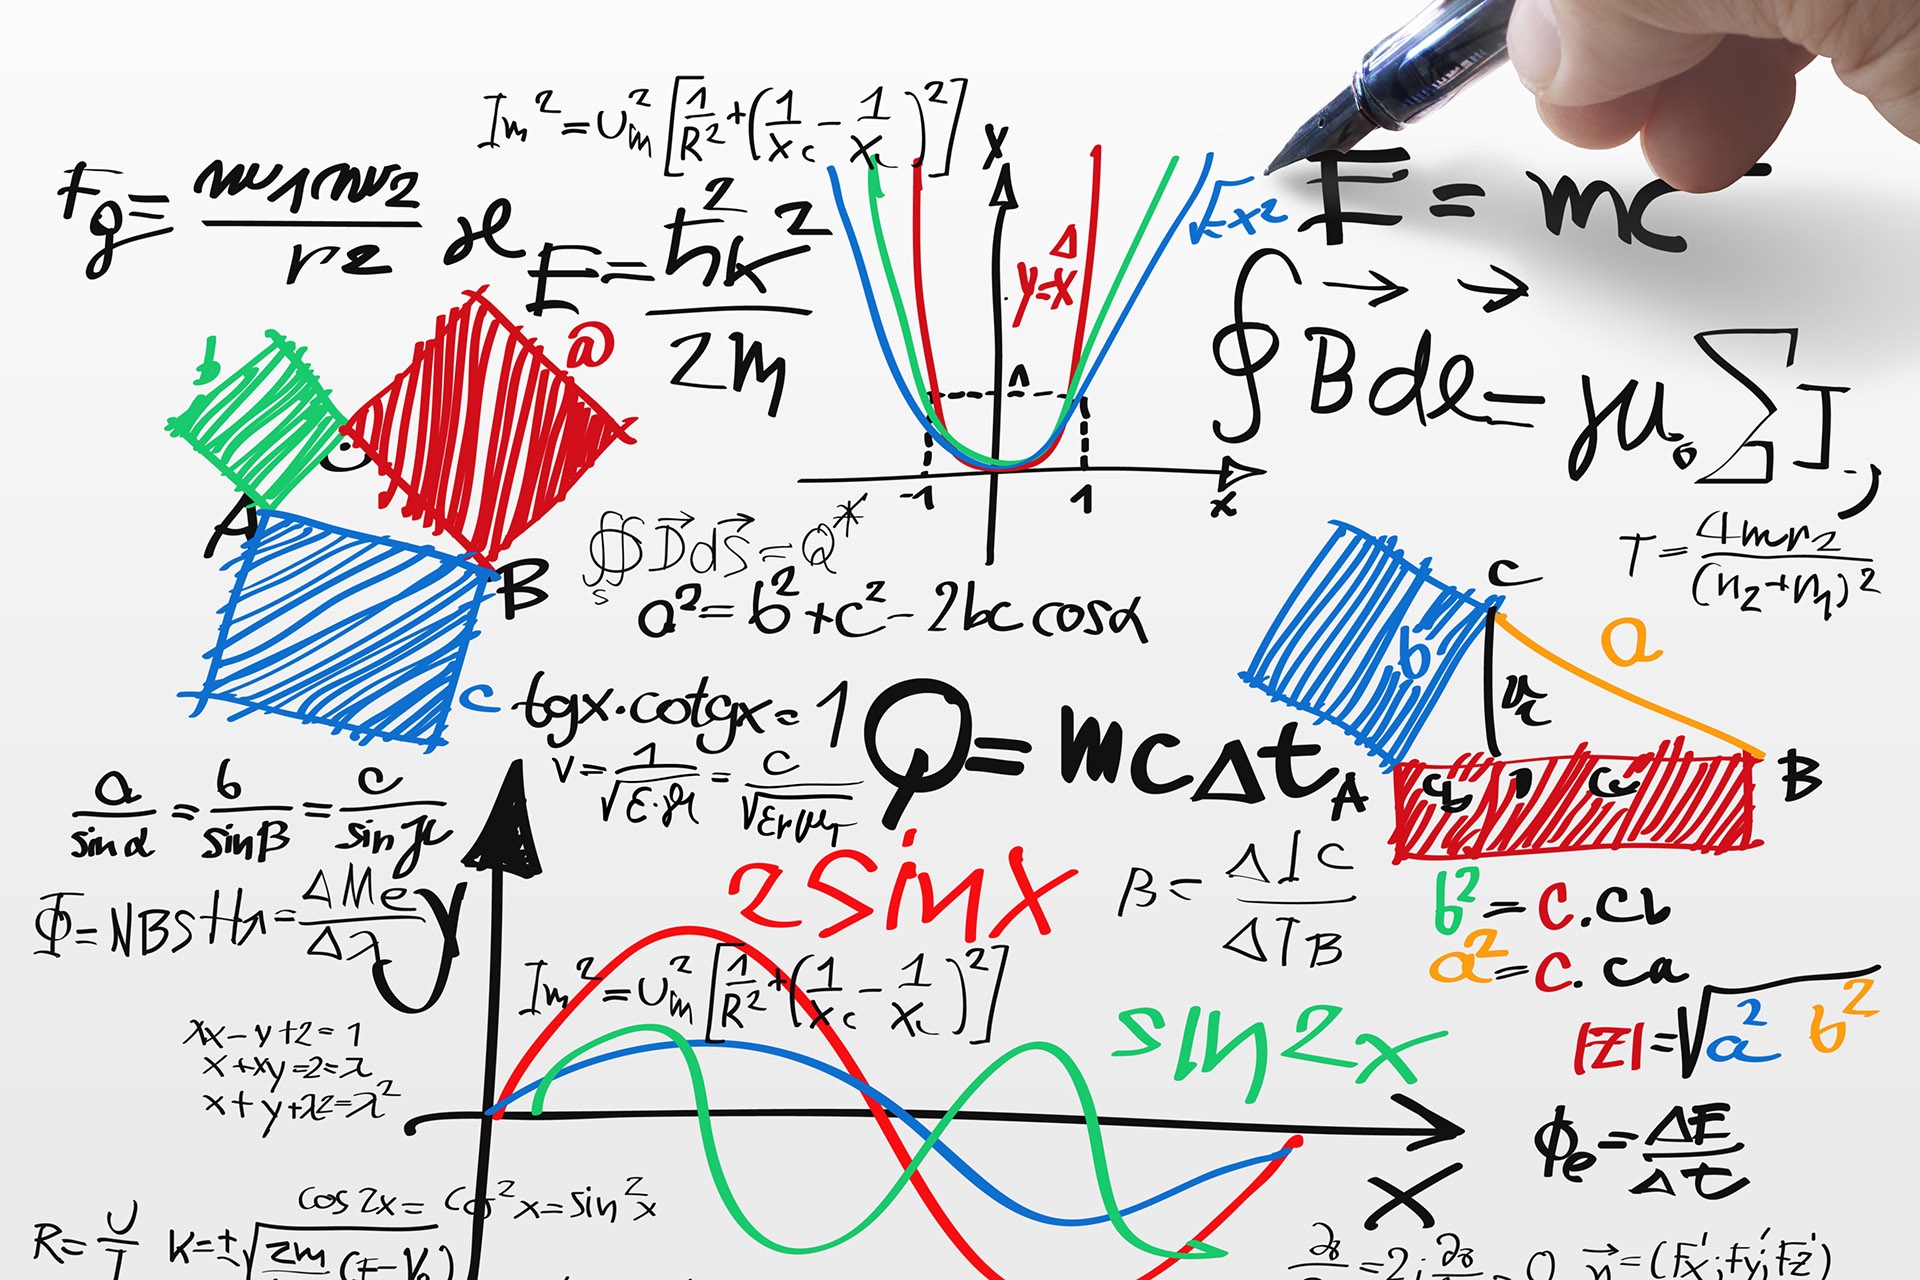 Im² = Um² [1/R² + (1/Xc − 1/X )²]
Fg = m1m2 / r2 æ
E = ħ²k² / 2m
X
y=x
x2
E = mc
∮ B dℓ = μ₀ Σ I
b
a
A
B
c
^
-1
1
x
∯ D dS = Q*
s
a² = b² + c² − 2bc cosα
T = 4mr2 / (n2+n1)²
C
b
a
A
B
tgx.cotgx = 1
Q = mcΔt
v = 1/√ε.μ = c/√εrμr
a/sinα = b/sinβ = c/sinγ
2sinx
β = ΔIC / ΔIB
b² = c.cb
a² = c.ca
Φ = NBS
ΔMe / Δλ
y
Im² = Um² [1/R² + (1/Xc − 1/XL)²]
sin2x
|z| = √a² b²
λx − y + 2 = 1
x + xy = 2 = λ
x + y + λ2 = λ²
ϕe = ΔE / Δt
X
cos 2x = cos²x = sin²x
R = U / I
K = ± √2m (E−V₀)
n = (Fx'; Fy'; Fz')